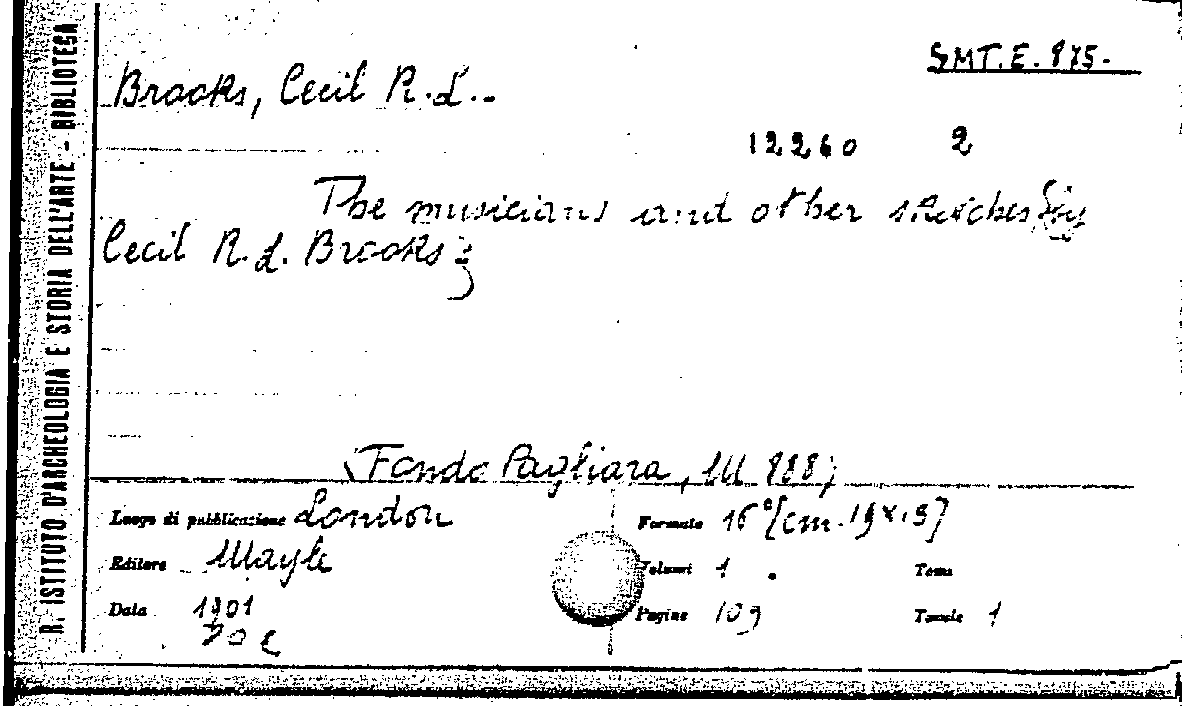 R. ISTITUTO D'ARCHEOLOGIA E STORIA DELL'ARTE - BIBLIOTECA
SMT. E. 875.
Brooks, Cecil R. L..
12260 2
The musicians and other sketches by
Cecil R. L. Brooks
(Fondo Pagliara, M 888)
Luogo di pubblicazione London
Formato 16° [cm. 19x13]
Editore
Volumi 1
Tomi
Data 1901
Pagine 109
Tavole 1